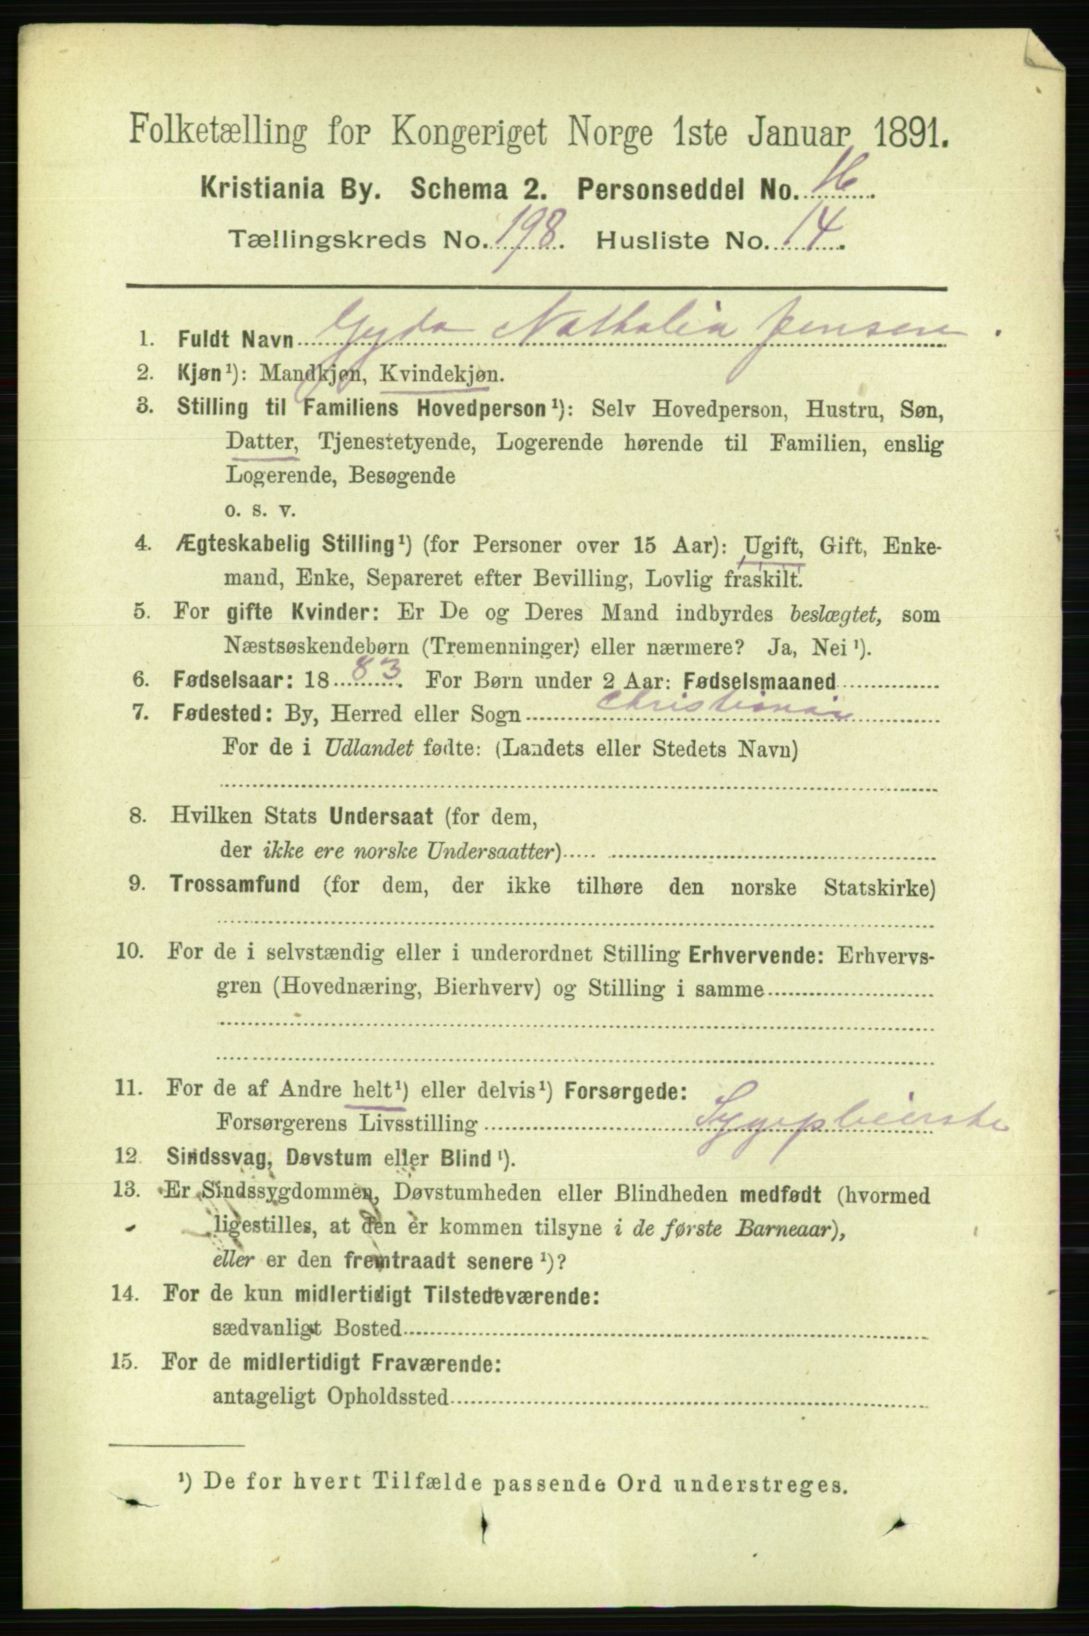 Folketælling for Kongeriget Norge 1ste Januar 1891.
Kristiania By. Schema 2. Personseddel No. 16.
Tællingskreds No. 198. Husliste No. 14.
1. Fuldt Navn Gyda Nathalia Jensen.
2. Kjøn¹): Mandkjøn, Kvindekjøn.
3. Stilling til Familiens Hovedperson¹): Selv Hovedperson, Hustru, Søn,
Datter, Tjenestetyende, Logerende hørende til Familien, enslig
Logerende, Besøgende
o. s. v.
4. Ægteskabelig Stilling¹) (for Personer over 15 Aar): Ugift, Gift, Enke-
mand, Enke, Separeret efter Bevilling, Lovlig fraskilt.
5. For gifte Kvinder: Er De og Deres Mand indbyrdes beslægtet, som
Næstsøskendebørn (Tremenninger) eller nærmere? Ja, Nei¹).
6. Fødselsaar: 1883. For Børn under 2 Aar: Fødselsmaaned
7. Fødested: By, Herred eller Sogn Christiania
For de i Udlandet fødte: (Landets eller Stedets Navn)
8. Hvilken Stats Undersaat (for dem,
der ikke ere norske Undersaatter)
9. Trossamfund (for dem, der ikke tilhøre den norske Statskirke)
10. For de i selvstændig eller i underordnet Stilling Erhvervende: Erhvervs-
gren (Hovednæring, Bierhverv) og Stilling i samme
11. For de af Andre helt¹) eller delvis¹) Forsørgede:
Forsørgerens Livsstilling Sygepleierske
12. Sindssvag, Døvstum eller Blind¹).
13. Er Sindssygdommen, Døvstumheden eller Blindheden medfødt (hvormed
ligestilles, at den er kommen tilsyne i de første Barneaar),
eller er den fremtraadt senere¹)?
14. For de kun midlertidigt Tilstedeværende:
sædvanligt Bosted
15. For de midlertidigt Fraværende:
antageligt Opholdssted
¹) De for hvert Tilfælde passende Ord understreges.